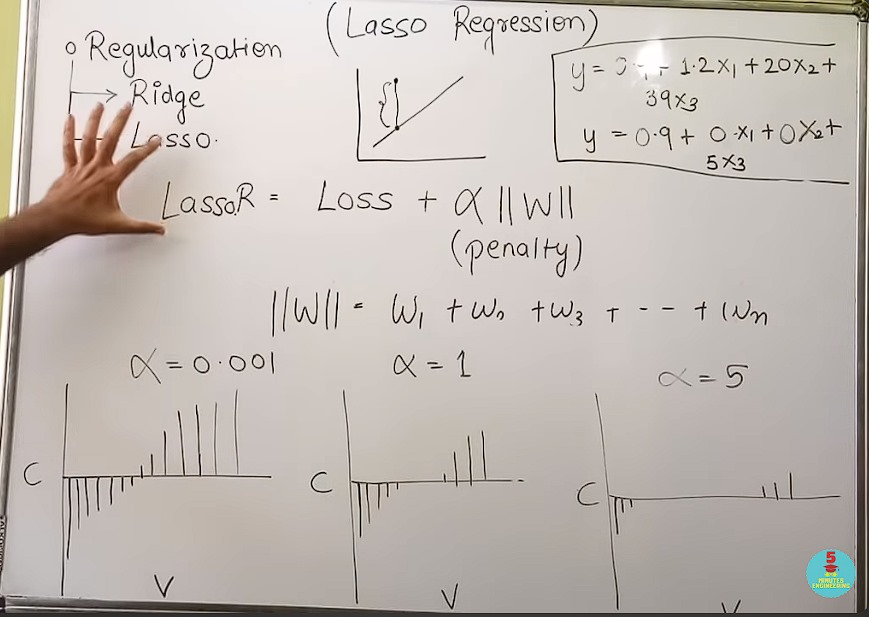 (Lasso Regression)
o Regularization
→ Ridge
Lasso.
y = 1.2x₁ + 20x₂ +
39x₃
y = 0.9 + 0·x₁ + 0x₂ +
5x₃
LassoR = Loss + α ||W||
(penalty)
||W|| = W₁ + W₂ + W₃ + - - + Wn
α = 0.001
α = 1
α = 5
C
C
C
V
V
V
5
MINUTES
ENGINEERING